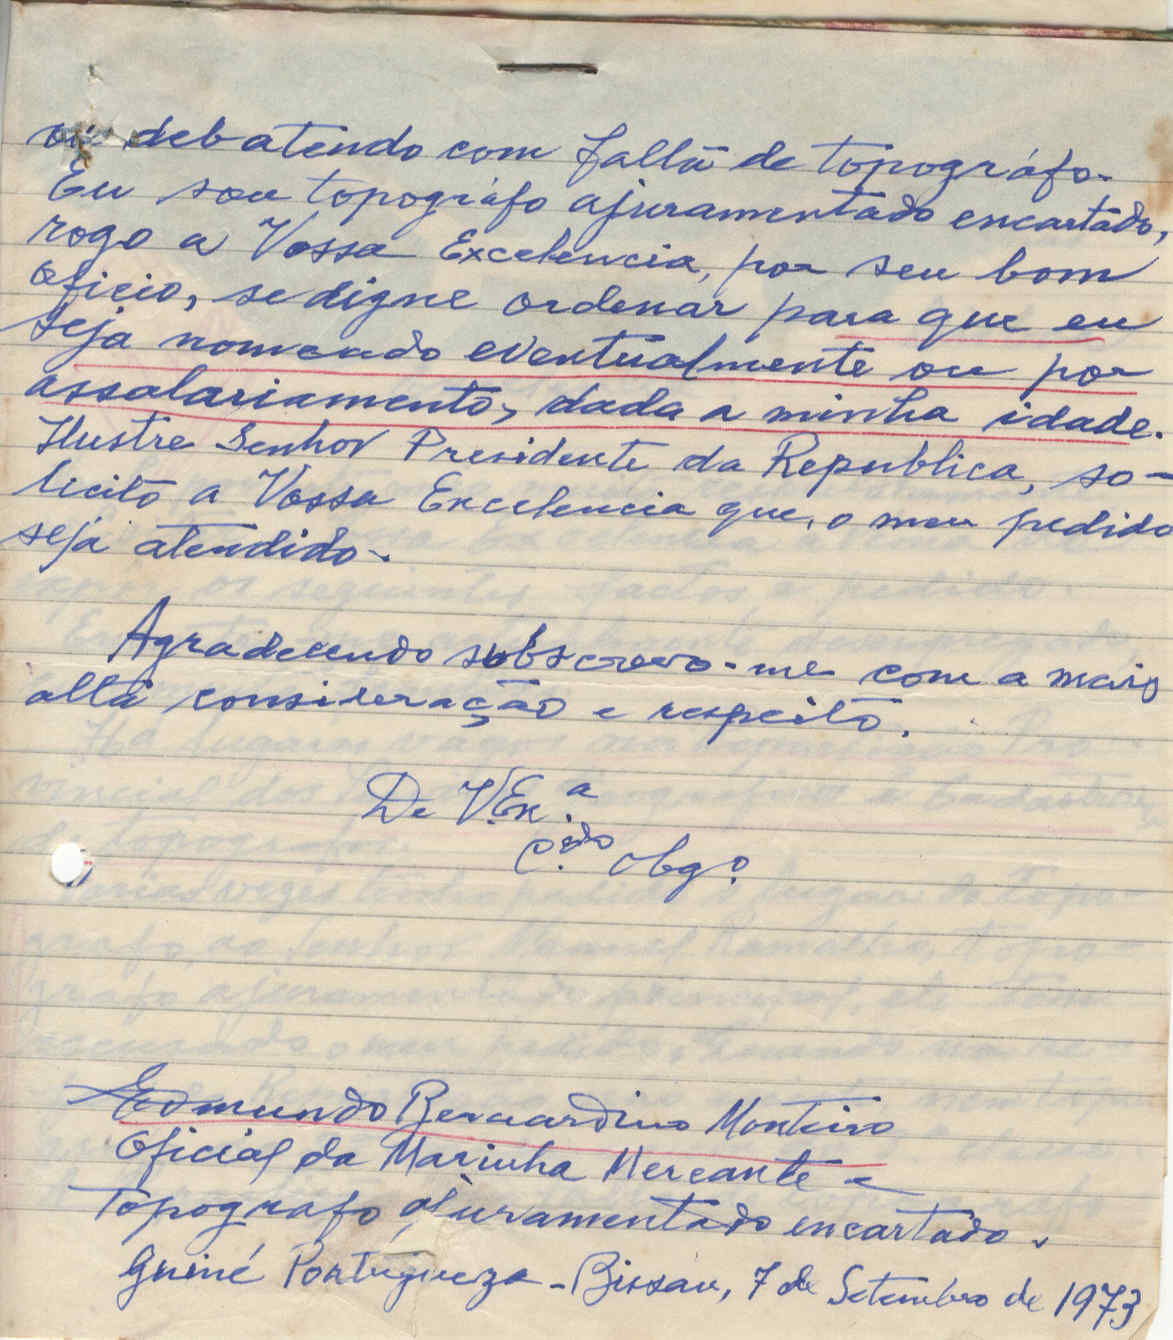 debatendo com falta de topográfo.
Eu sou topográfo ajuramentado encartado,
rogo a Vossa Excelencia, por seu bom
oficio, se digne ordenar para que eu
seja nomeado eventualmente ou por
assalariamento, dada a minha idade.
Ilustre Senhor Presidente da Republica, so-
licito a Vossa Excelencia que, o meu pedido
seja atendido.
Agradecendo subscrevo-me com a mais
alta consideração e respeito.
De V.Ex.ª
C.do Obg.º
Edmundo Bernardino Monteiro
Oficial da Marinha Mercante e
Topografo ajuramentado encartado.
Guiné Portugueza - Bissau, 7 de Setembro de 1973